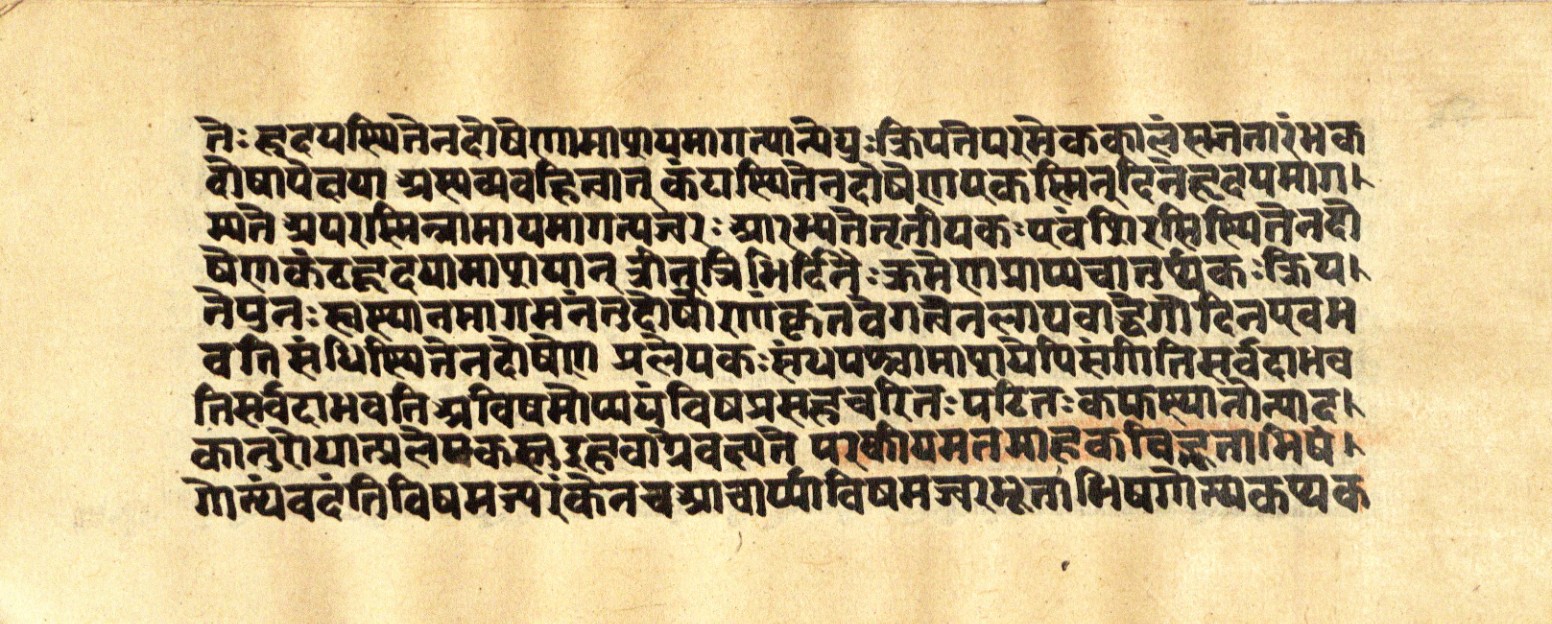 तैः हृदयस्थितेन दोषेणामाशयमागत्यान्येद्युः क्रियते परमेककालं सततारंभक
दोषापेक्षया अस्यव्यवहितत्वात् कंठस्थितेन दोषेणायकस्मिन् दिने हृदयमाग।
म्यते अपरस्मिन्नामाशयमागत्यज्वरः आरभ्यतेतृतीयकः एवं शिरसिस्थितेन दो
षेण कंठहृदयामाशयान् त्रीन् त्रिभिर्दिनैः क्रमेणप्राप्यचातुर्थकः क्रिय।
ते पुनः स्वस्थानमागमनंतु दोषाणां कृतवेगत्वेनलाघवात् वेगदिन एव भ
वति संधिस्थितेन दोषेण प्रलेपकः संधयश्चामाशयेपि संतीति सर्वदाभव
तिसर्वदाभवति अविषमोप्ययं विषप्रसहचरितः पठितः कफस्थानोत्पाद।
कानुरोधात्प्रलेपकस्तु एवात्रवक्ष्यते परकीयमतमाह केचिद्भूताभिषं।
गोत्थं वदंति विषमज्वरं केनच आचार्या विषमज्वरभूताभिषंगोत्थकथ्यक